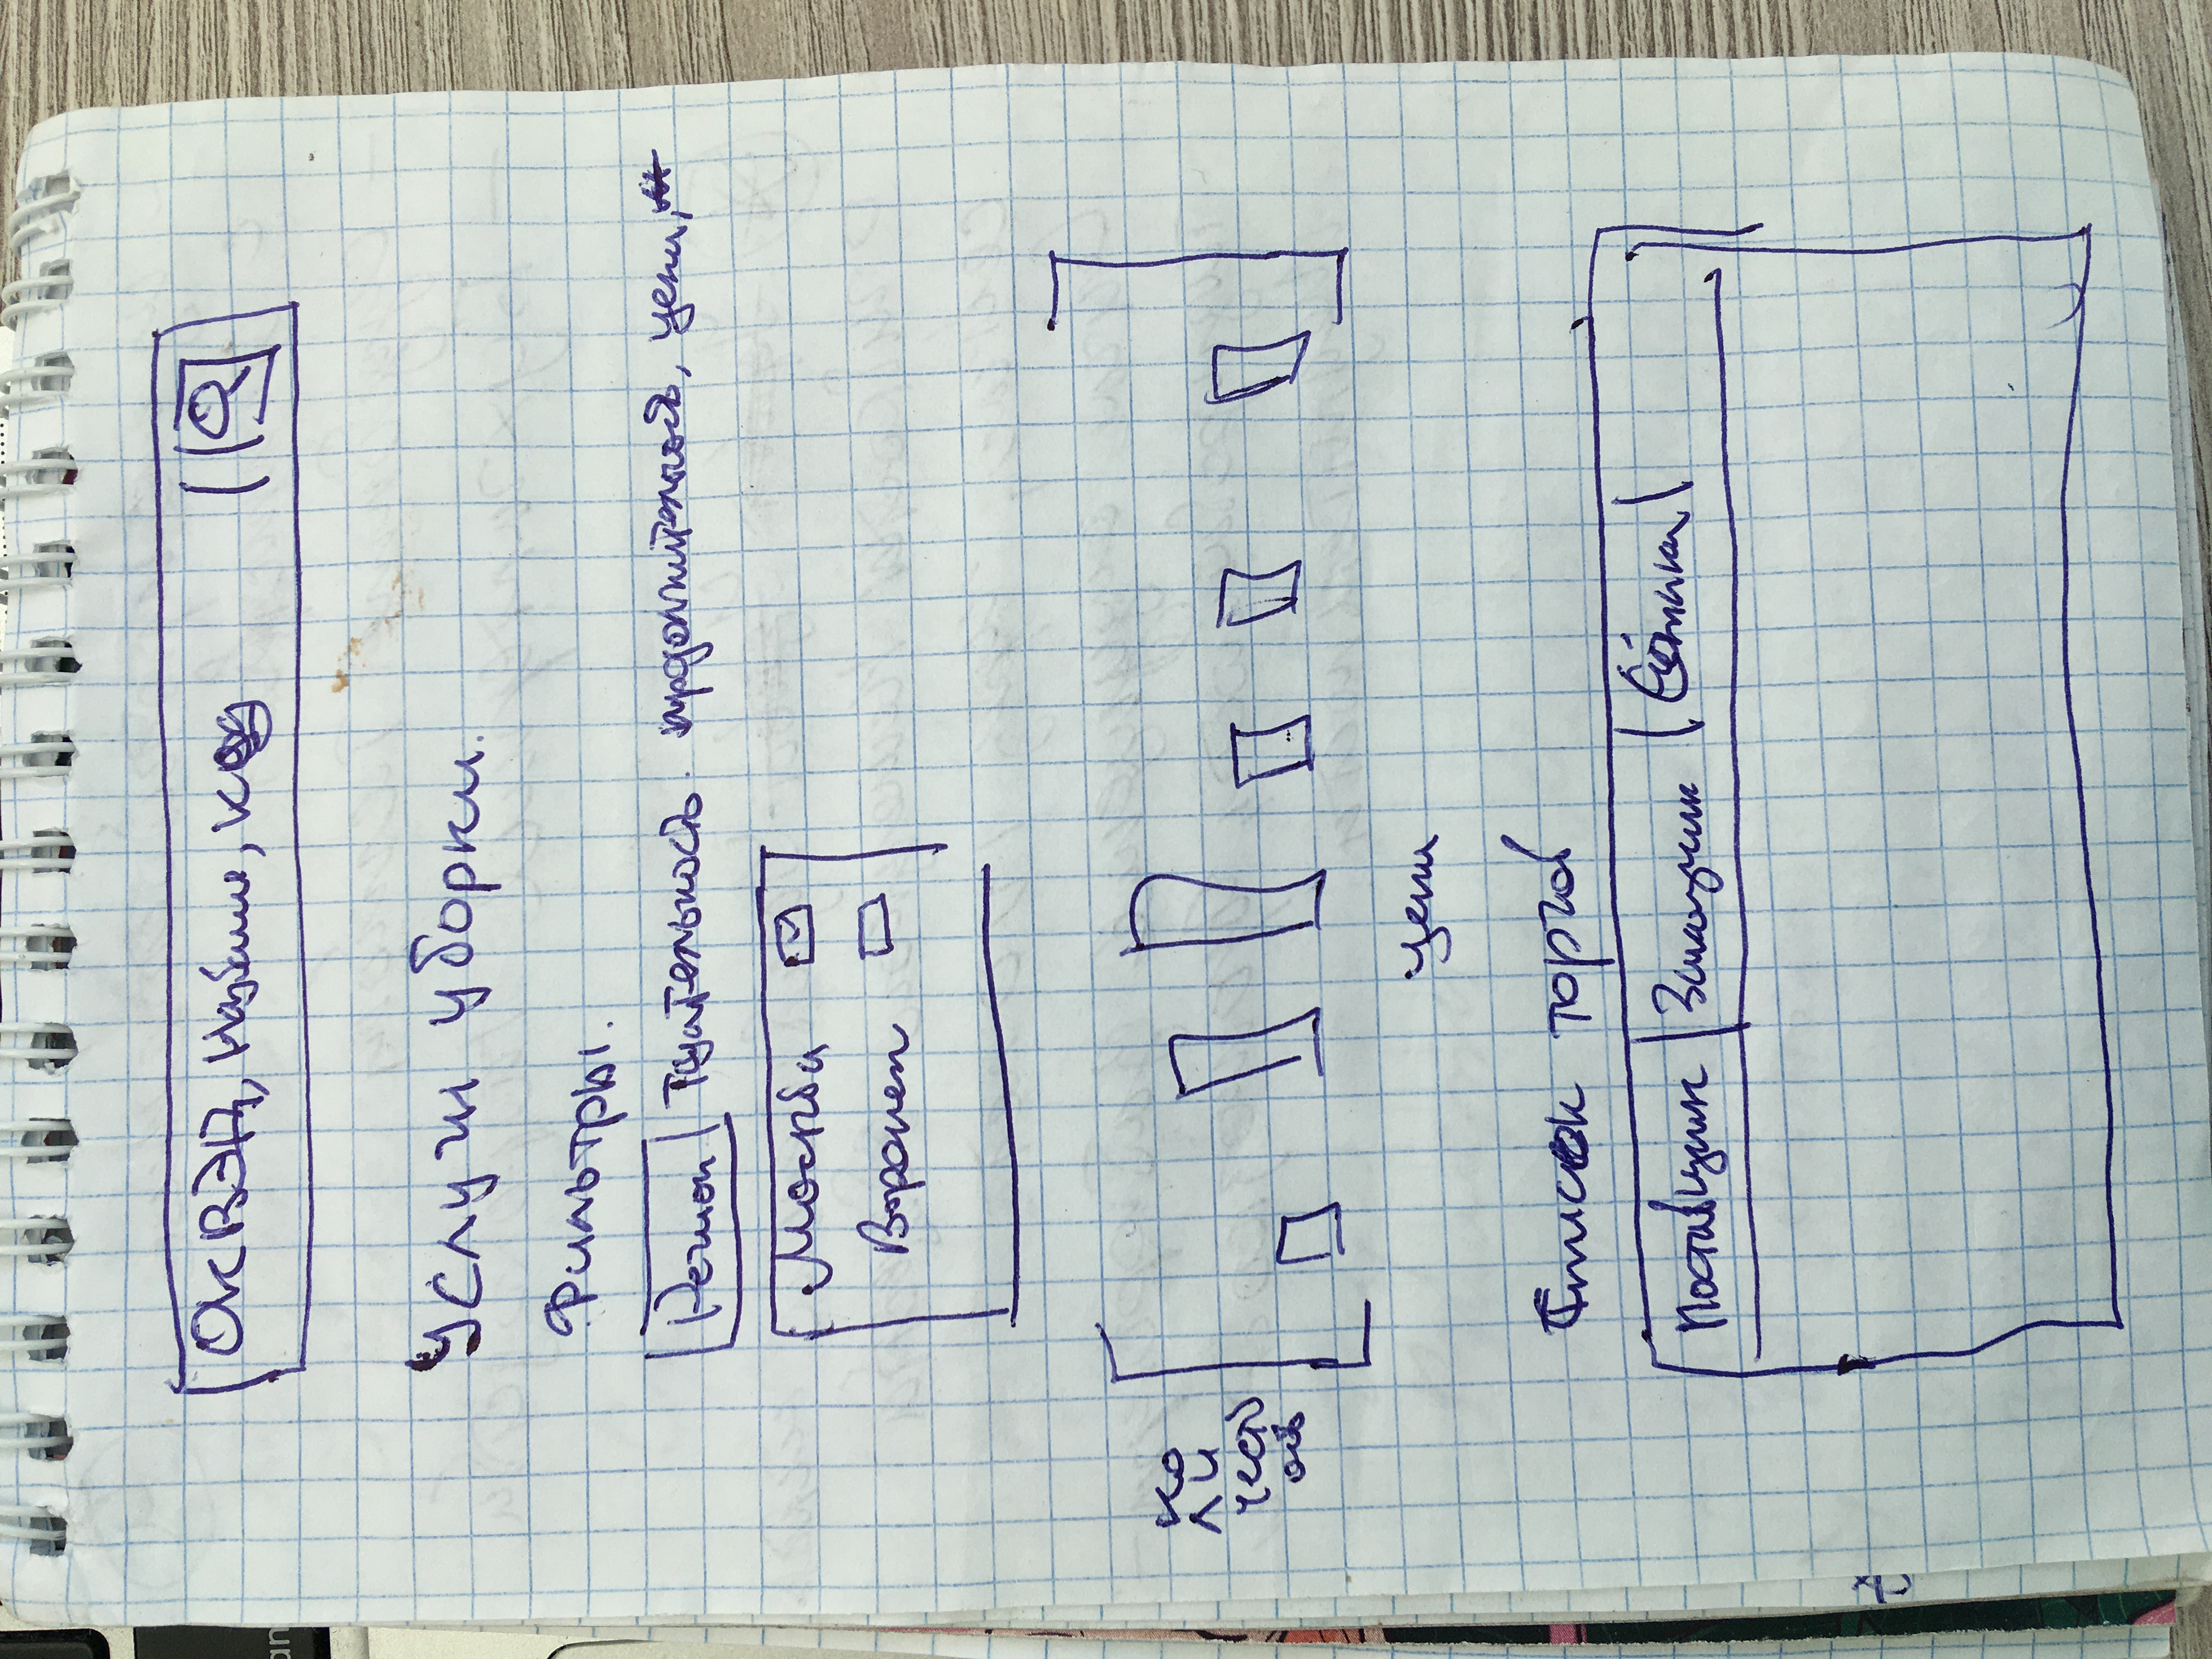 ОКВЭД, Название, код
Услуги уборки.
Фильтры.
Регион Тщательность. продолжительность, цены,
Москва
Воронеж
ко
ли
честв
ость
цены
Список торгов
Поставщик Заказчик